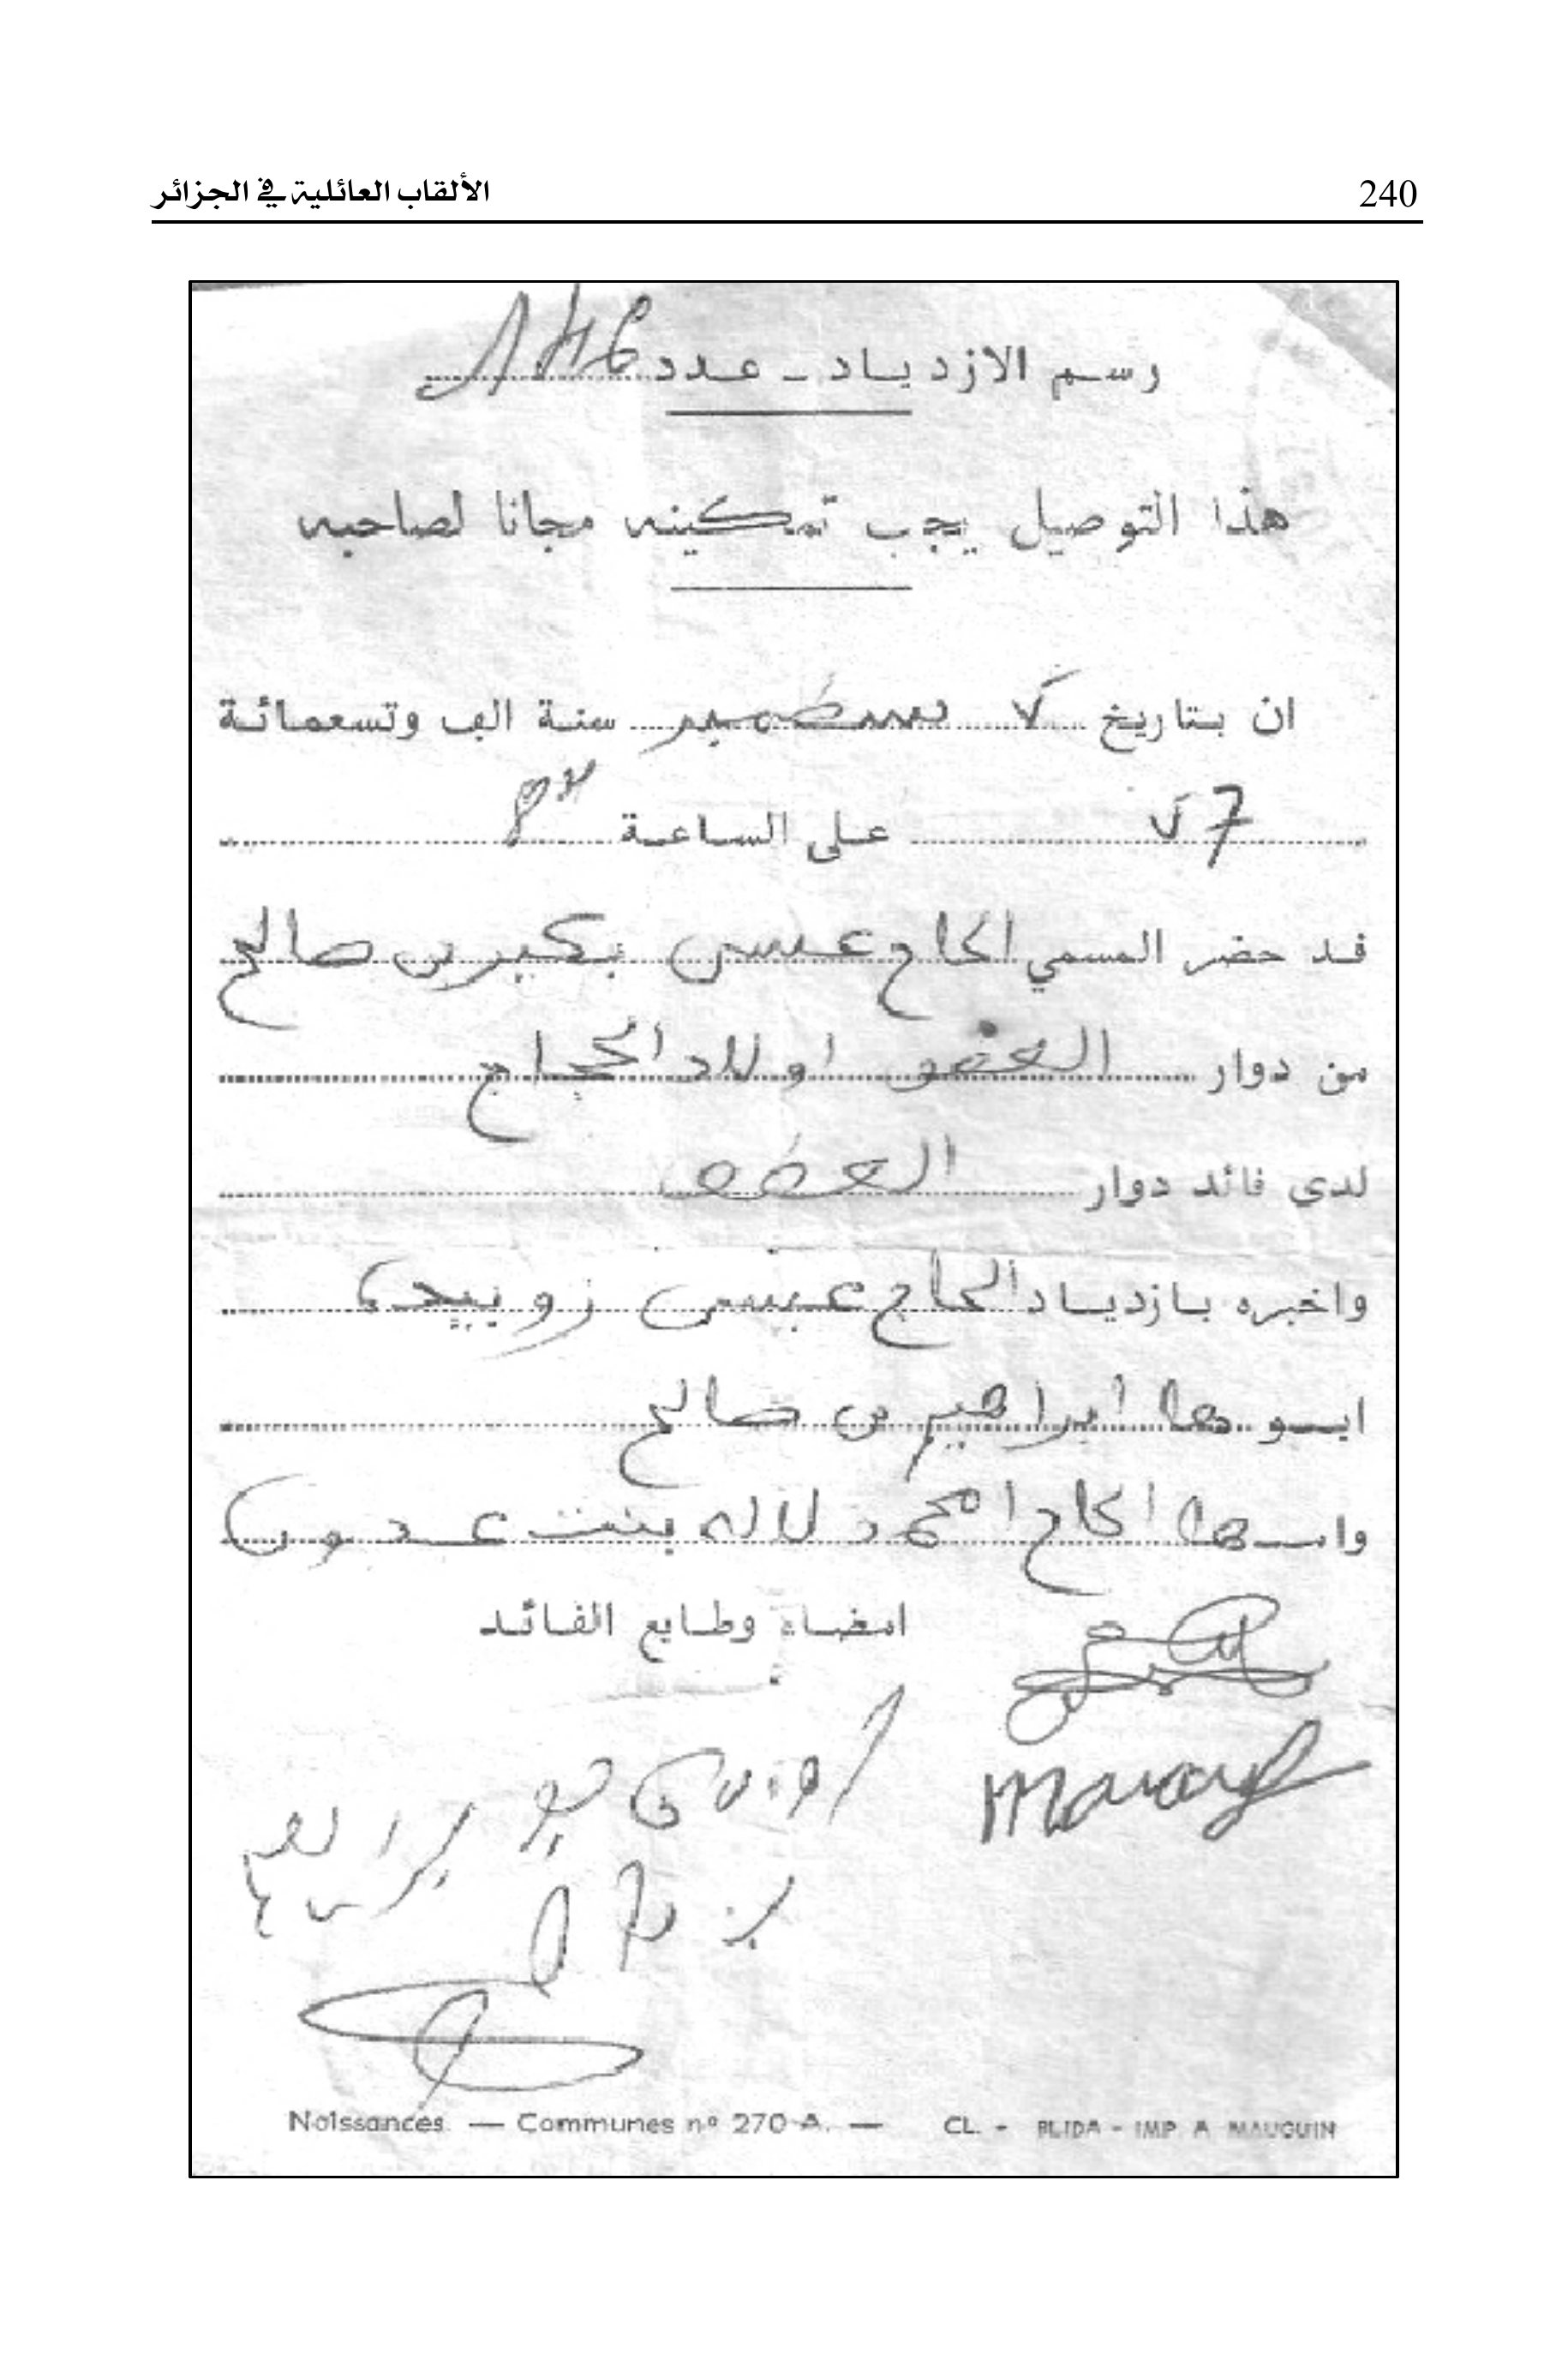 240
الألقاب العائلية في الجزائر
رسم الازدياد - عدد
هذا التوصيل يجب تمكينه مجانا لصاحبه
ان بتاريخ ٧ سطمبر سنة الف وتسعمائة
على الساعة
قد حضر المسمي الحاج عيسى بكير بن صالح
من دوار العضف اولاد الحجاج
لدى قائد دوار العطف
واخبره بازدياد الحاج عيسى زوبيدة
ابوها ابراهيم بن صالح
وامها الحاج امحمد لاله بنت عدون
امضاء وطابع القائد
Naissances. — Communes nº 270-A. — CL. - BLIDA - IMP A MAUGUIN